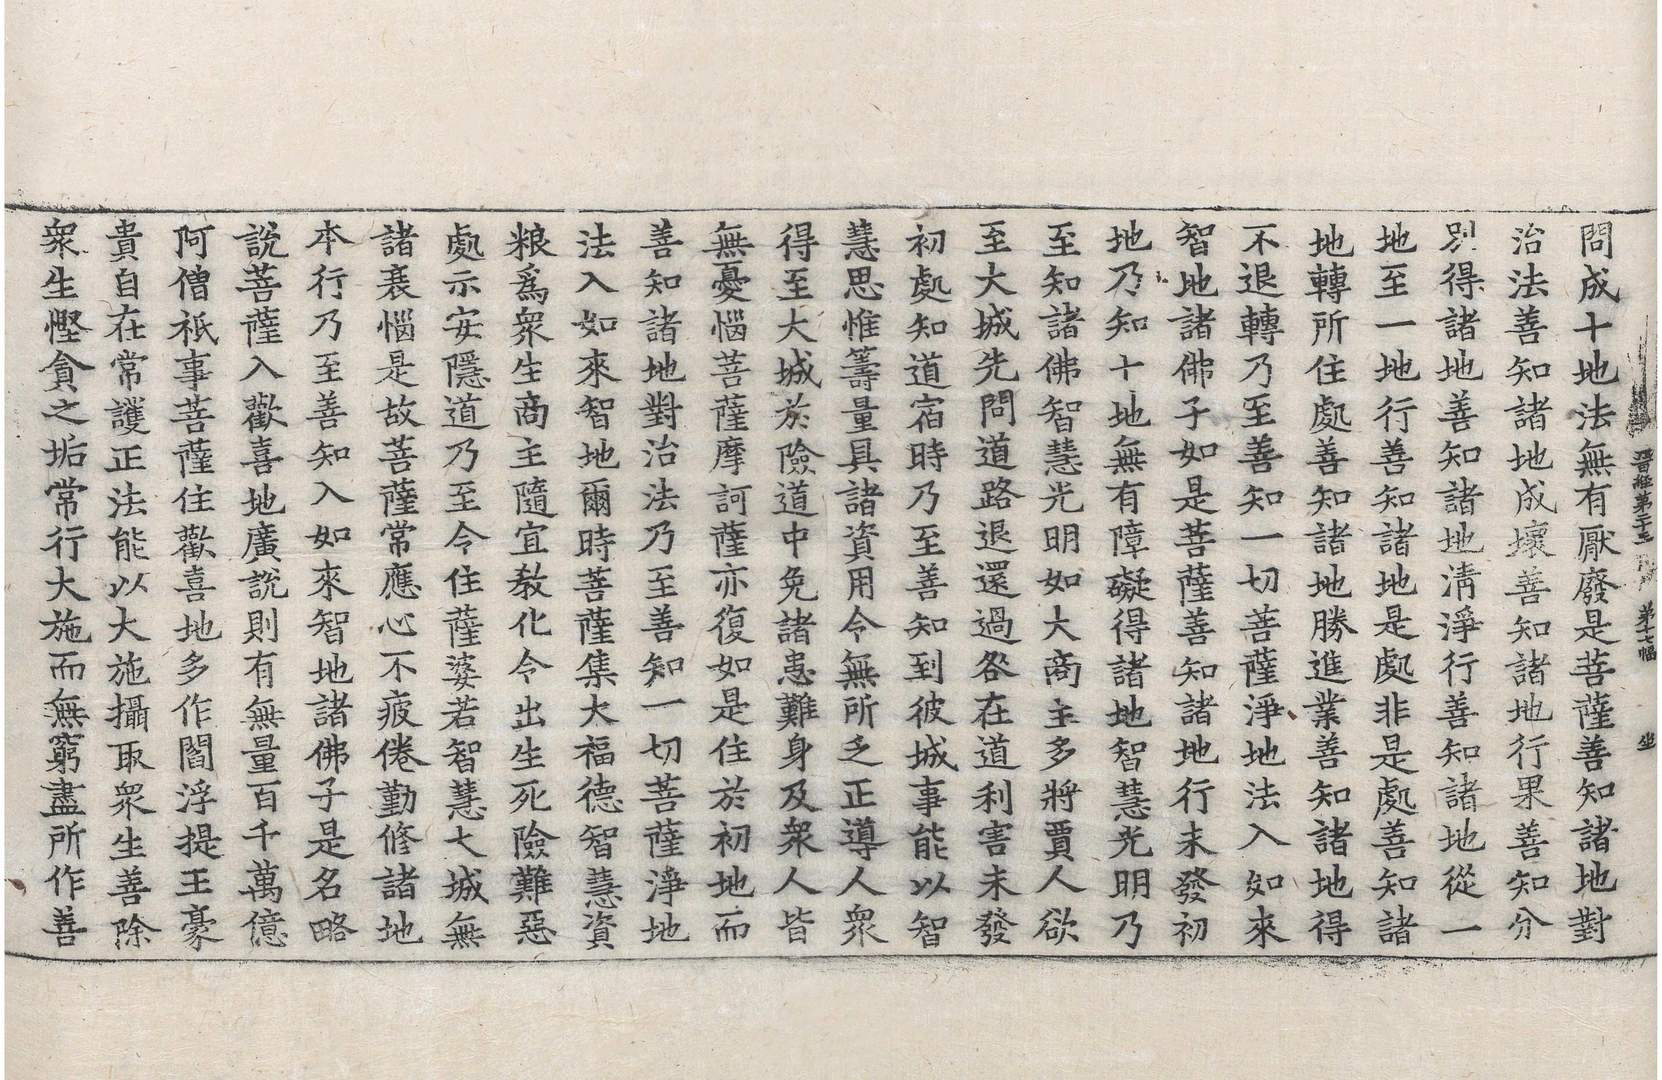 晋經第二十三 第十七幅 坐
問成十地法無有厭廢是菩薩善知諸地對
治法善知諸地成壞善知諸地行果善知分
別得諸地善知諸地清淨行善知諸地從一
地至一地行善知諸地是處非是處善知諸
地轉所住處善知諸地勝進業善知諸地得
不退轉乃至善知一切菩薩淨地法入如來
智地諸佛子如是菩薩善知諸地行未發初
地乃知十地無有障礙得諸地智慧光明乃
至知諸佛智慧光明如大商主多將賈人欲
至大城先問道路退還過咎在道利害未發
初處知道宿時乃至善知到彼城事能以智
慧思惟籌量具諸資用令無所乏正導人衆
得至大城於險道中免諸患難身及衆人皆
無憂惱菩薩摩訶薩亦復如是住於初地而
善知諸地對治法乃至善知一切菩薩淨地
法入如來智地爾時菩薩集大福德智慧資
粮爲衆生商主隨宜教化令出生死險難惡
處示安隱道乃至令住薩婆若智慧大城無
諸衰惱是故菩薩常應心不疲倦勤修諸地
本行乃至善知入如來智地諸佛子是名略
說菩薩入歡喜地廣說則有無量百千萬億
阿僧祇事菩薩住歡喜地多作閻浮提王豪
貴自在常護正法能以大施攝取衆生善除
衆生慳貪之垢常行大施而無窮盡所作善